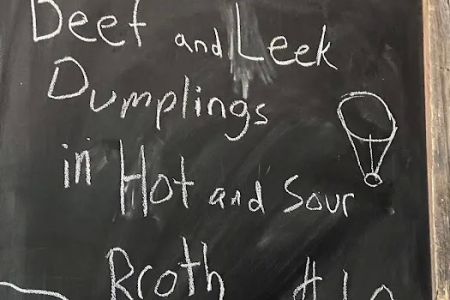 Beef and Leek
Dumplings
in Hot and Sour
Broth